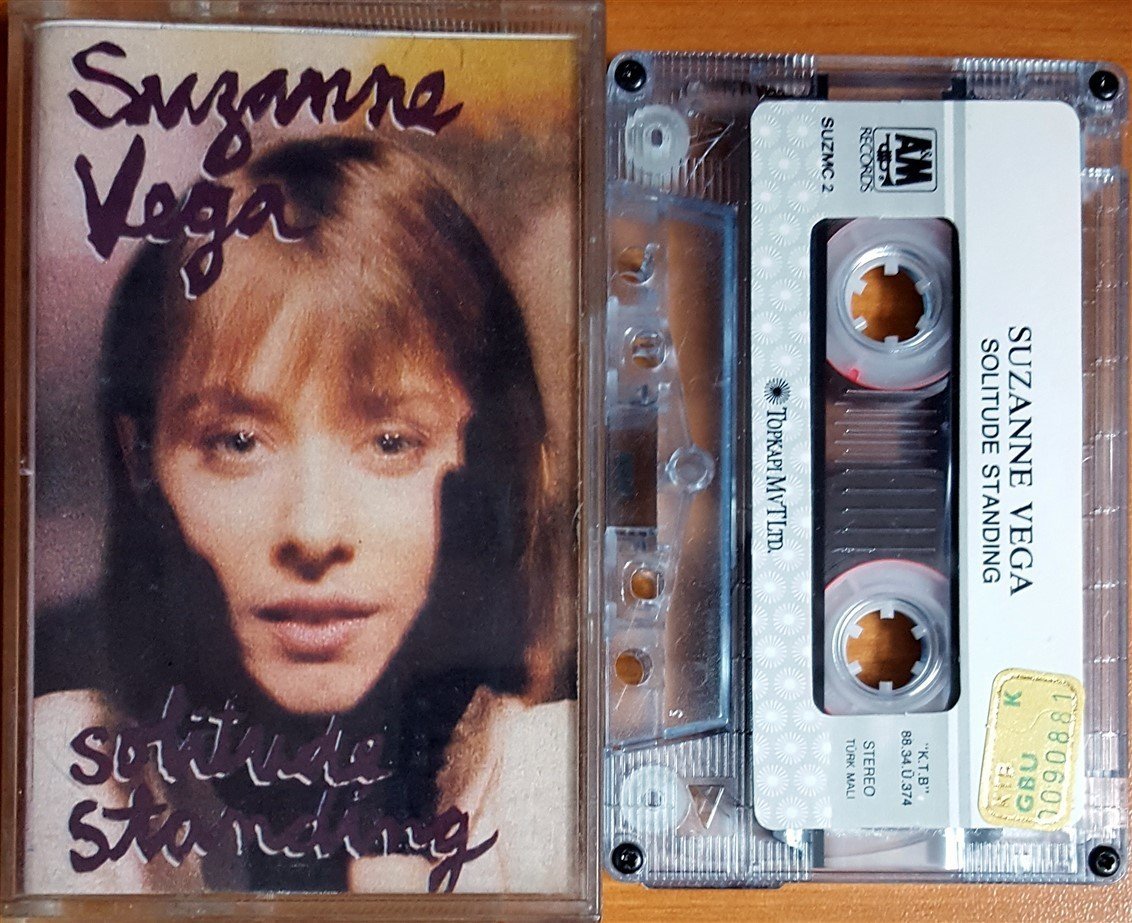 Suzanne
Vega
solitude
standing
A&M
RECORDS
SUZMC 2
SUZANNE VEGA
SOLITUDE STANDING
TOPKAPI MVT LTD.
"K.T.B"
88.34.Ü.374
STEREO
TÜRK MALI
K